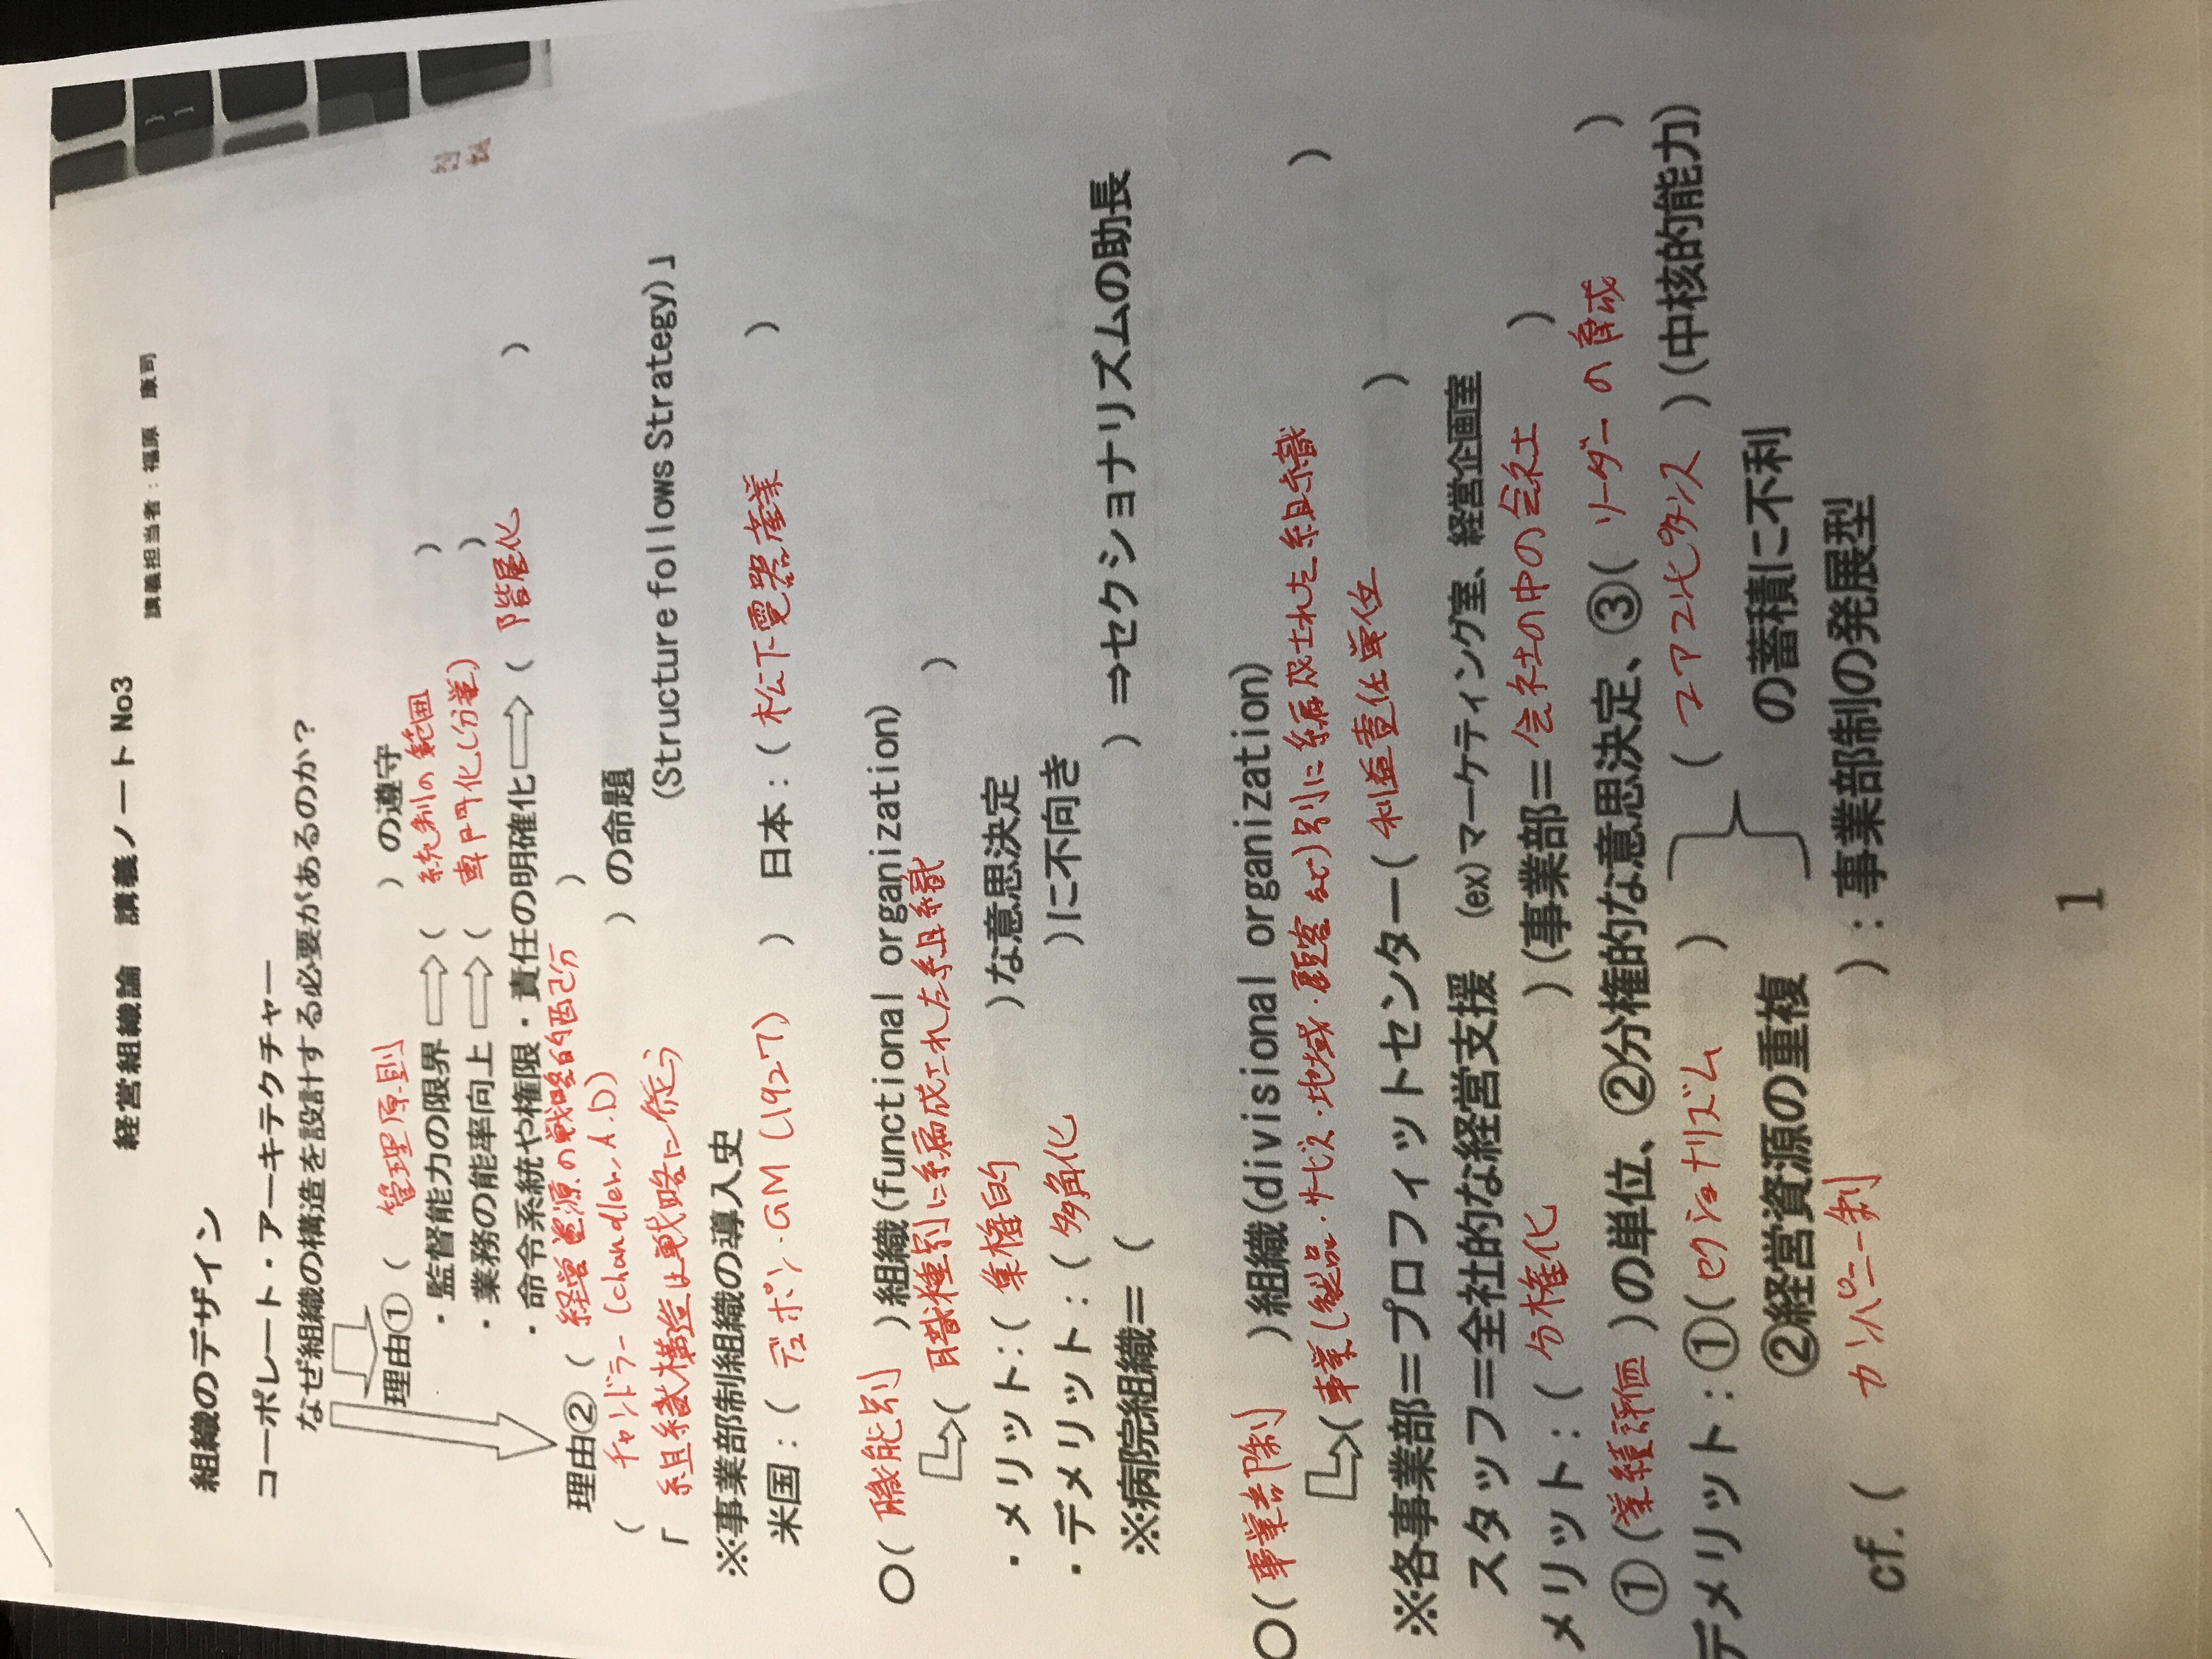 経営組織論　講義ノート No3
講義担当者：福原　康司
組織のデザイン
コーポレート・アーキテクチャー
なぜ組織の構造を設計する必要があるのか？
理由①（ 管理原則 ）の遵守
・監督能力の限界 ⇨（ 統制の範囲 ）
・業務の能率向上 ⇨（ 専門化(分業) ）
・命令系統や権限・責任の明確化 ⇨（ 階層化 ）
理由②（ 経営資源の戦略的配分 ）
（ チャンドラー (chandler, A.D) ）の命題
「 組織構造は戦略に従う (Structure follows Strategy)」
※事業部制組織の導入史
米国：（ デュポン・GM (1927) ） 日本：（ 松下電器産業 ）
○( 職能別 )組織(functional organization)
( 職種別に編成された組織 )
・メリット:( 集権的 )な意思決定
・デメリット：( 多角化 )に不向き
※病院組織＝（ ）⇒セクショナリズムの助長
○( 事業部制 )組織(divisional organization)
( 事業(製品・サービス・地域・顧客など)別に編成された組織 )
※各事業部＝プロフィットセンター( 利益責任単位 )
スタッフ＝全社的な経営支援　(ex)マーケティング室、経営企画室
メリット：( 分権化 )(事業部＝ 会社の中の会社 )
①(業績評価 )の単位、②分権的な意思決定、③( リーダーの育成 )
デメリット：①( セクショナリズム ) ( コアコンピタンス )(中核的能力)
②経営資源の重複 の蓄積に不利
cf.( カンパニー制 )：事業部制の発展型
1